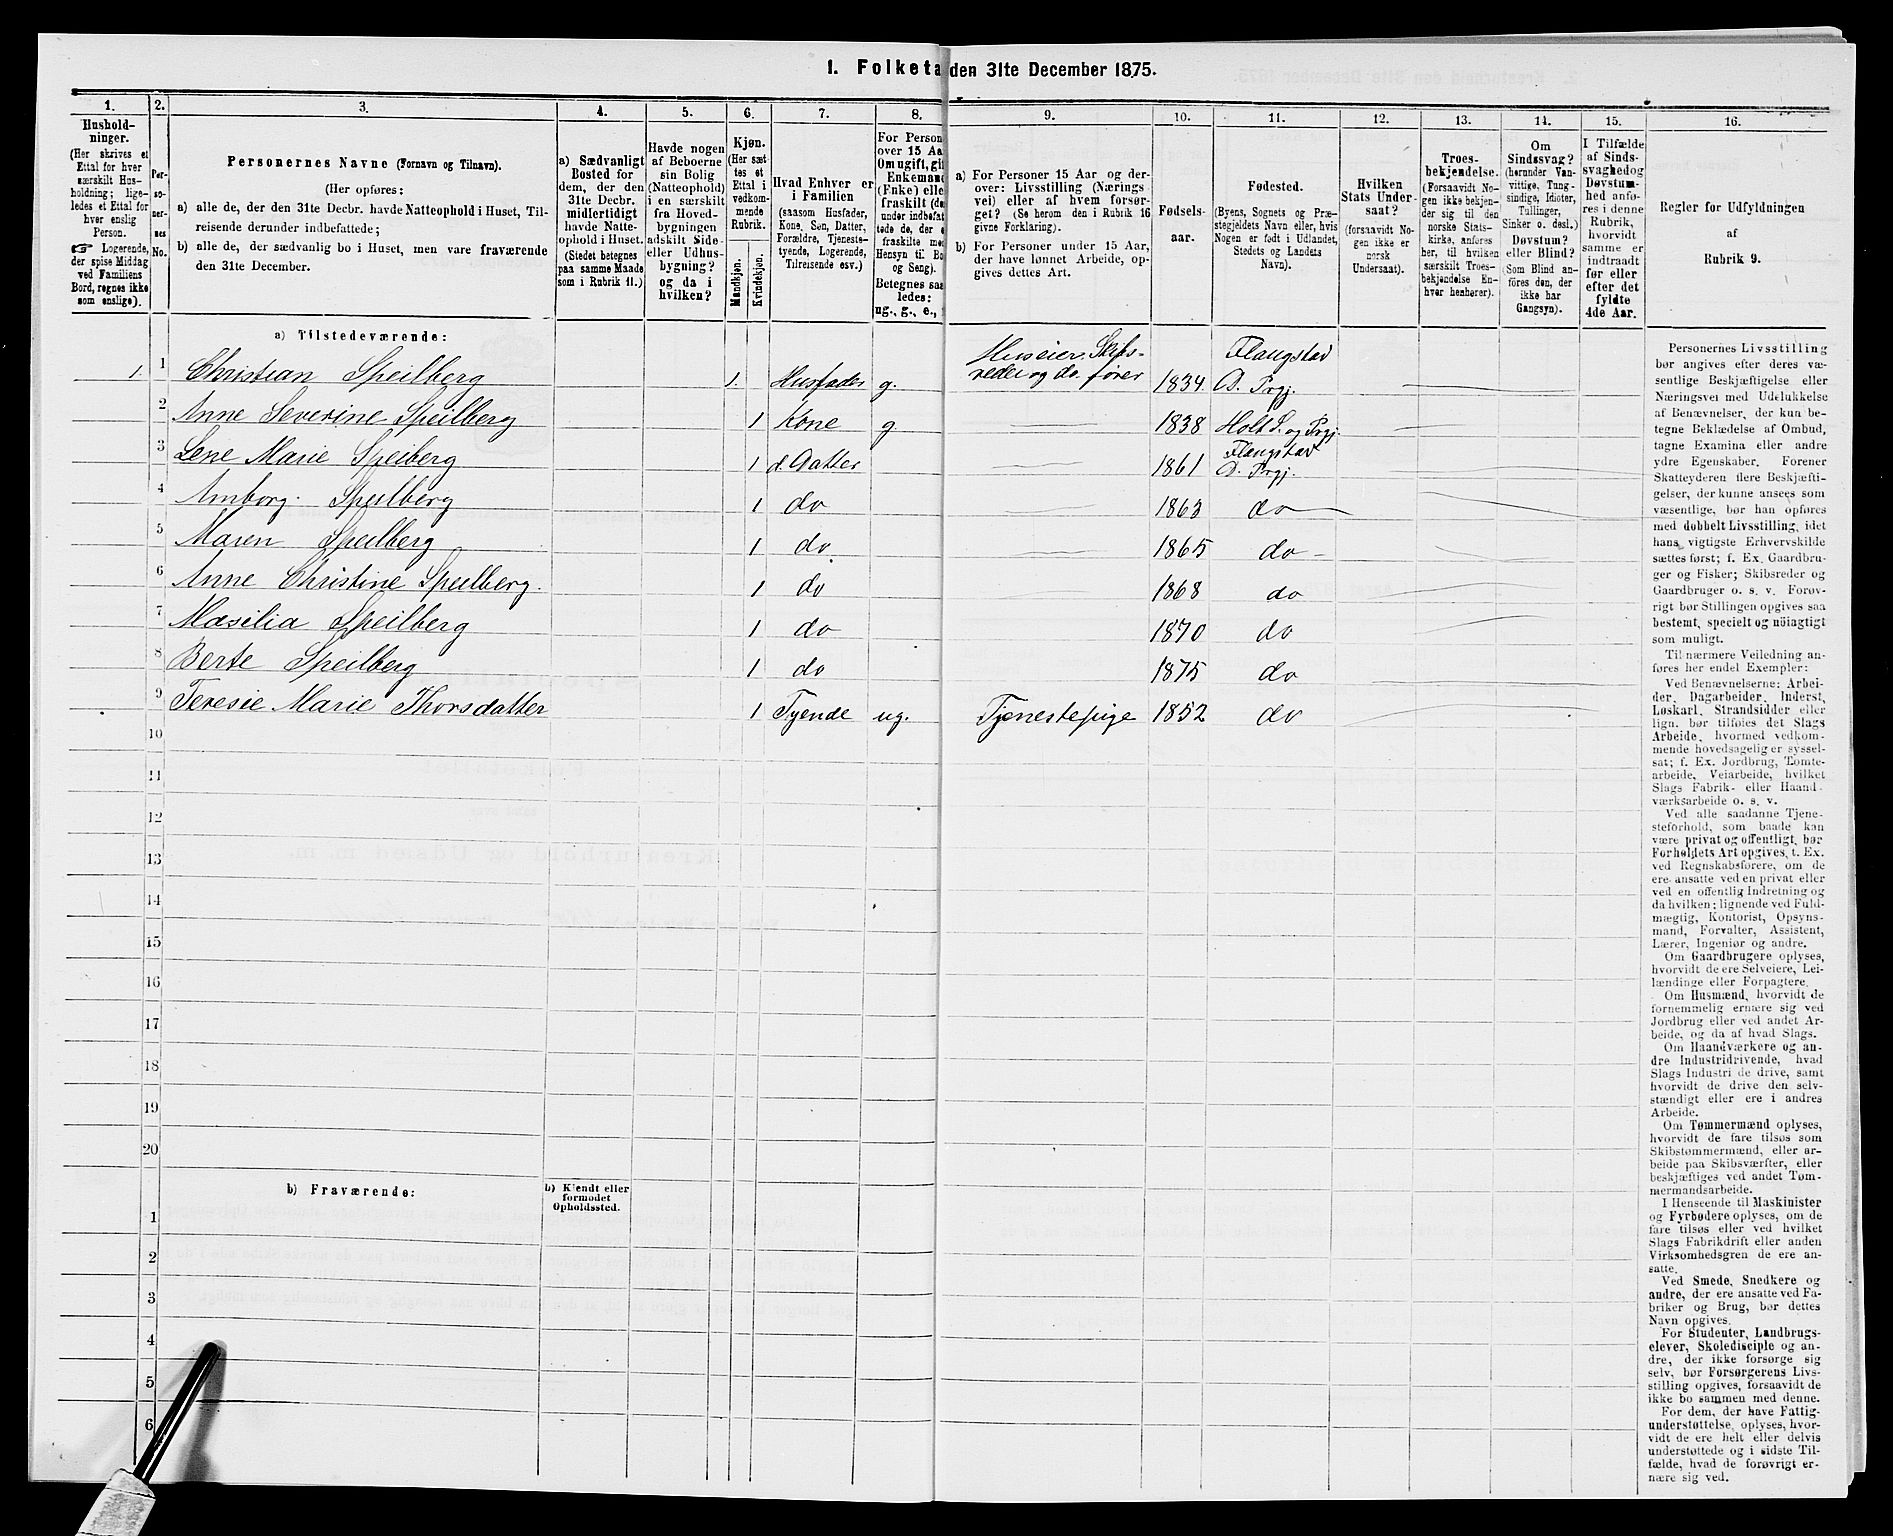 1. Folketa den 31te December 1875.
1. 2. 3. 4. 5. 6. 7. 8. 9. 10. 11. 12. 13. 14. 15. 16.
Hushold-
ninger.
(Her skrives et
Ettal for hver
særskilt Hus-
holdning; lige-
ledes et Ettal for
hver enslig
Person.
☞ Logerende,
der spise Middag
ved Familiens
Bord, regnes ikke
som enslige).
Per-
so-
ner-
nes
No.
Personernes Navne (Fornavn og Tilnavn).
(Her opføres:
a) alle de, der den 31te Decbr. havde Natteophold i Huset, Til-
reisende derunder indbefattede;
b) alle de, der sædvanlig bo i Huset, men vare fraværende
den 31te December.
a) Sædvanligt
Bosted for
dem, der den
31te Decbr.
midlertidigt
havde Natte-
ophold i Huset.
(Stedet betegnes
paa samme Maade
som i Rubrik 11.)
Havde nogen
af Beboerne
sin Bolig
(Natteophold)
i en særskilt
fra Hoved-
bygningen
adskilt Side-
eller Udhus-
bygning?
og da i
hvilken?
Kjøn.
(Her sæt-
tes et
Ettal i
vedkom-
mende
Rubrik.
Mandkjøn.
Kvindekjøn.
Hvad Enhver er
i Familien
(saasom Husfader,
Kone, Søn, Datter,
Forældre, Tjeneste-
tyende, Logerende,
Tilreisende osv.)
For Person
over 15 Aa
Om ugift, gif
Enkemand
(Enke) elle
fraskilt (de
under indbefat
tede de, der e
fraskilte me
Hensyn til Bo
og Seng).
Betegnes saa
ledes:
ug., g., e.,
a) For Personer 15 Aar og der-
over: Livsstilling (Nærings
vei) eller af hvem forsør-
get? (Se herom den i Rubrik 16
givne Forklaring).
b) For Personer under 15 Aar,
der have lønnet Arbeide, op-
gives dettes Art.
Fødsels-
aar.
Fødested.
(Byens, Sognets og Præ-
stegjeldets Navn eller, hvis
Nogen er født i Udlandet,
Stedets og Landets
Navn).
Hvilken
Stats Under-
saat?
(forsaavidt No-
gen ikke er
norsk
Undersaat).
Troes-
bekjendelse.
(Forsaavidt No-
gen ikke bekjen-
der sig til den
norske Stats-
kirke, anføres
her, til hvilken
særskilt Troes-
bekjendelse En-
hver henhører).
Om
Sindssvag?
(herunder Van-
vittige, Tung-
sindige, Idioter,
Tullinger,
Sinker o. desl.)
Døvstum?
eller Blind?
(Som Blind an-
føres den, der
ikke har
Gangsyn).
I Tilfælde
af Sinds-
svaghed og
Døvstum-
hed anfø-
res i denne
Rubrik,
hvorvidt
samme er
indtraadt
før eller
efter det
fyldte
4de Aar.
Regler for Udfyldningen
af
Rubrik 9.
a) Tilstedeværende:
1. 1 Christian Speilberg 1. Husfader g. Huseier Skibs-reder og do. fører 1834. Flangstad D. Prgj.
2 Anne Severine Speilberg 1 Kone g 1838 Holt S. og Prgj.
3 Lene Marie Speiberg 1 d. Datter 1861 Flangstad D. Prgj.
4 Amborg. Speilberg 1 do 1863 do
5 Maren Speilberg 1 do 1865 do
6 Anne Christine Speilberg. 1 do 1868 do
7 Mæsilia Speilberg 1 do 1870 do
8 Berte Speilberg 1 do 1875 do
9 Teresie Marie Thorsdatter 1 Tyende ug. Tjenestepige 1852 do
10
11
12
13
14
15
16
17
18
19
20
b) Fraværende:
b) Kjendt eller
formodet
Opholdssted.
1
2
3
4
5
6
Personernes Livsstilling
bør angives efter deres væ-
sentlige Beskjæftigelse eller
Næringsvei med Udelukkelse
af Benævnelser, der kun be-
tegne Beklædelse af Ombud,
tagne Examina eller andre
ydre Egenskaber. Forener
Skatteyderen flere Beskjæfti-
gelser, der kunne ansees som
væsentlige, bør han opføres
med dobbelt Livsstilling, idet
hans vigtigste Erhvervskilde
sættes først; f. Ex. Gaardbru-
ger og Fisker; Skibsreder og
Gaardbruger o. s. v. Forøv-
rigt bør Stillingen opgives saa
bestemt, specielt og nöiagtigt
som muligt.
Til nærmere Veiledning an-
føres her endel Exempler:
Ved Benævnelserne: Arbei-
der, Dagarbeider, Inderst,
Løskarl, Strandsidder eller
lign. bør tilføies det Slags
Arbeide, hvormed vedkom-
mende hovedsagelig er syssel-
sat; f. Ex. Jordbrug, Tomte-
arbeide, Veiarbeide, hvilket
Slags Fabrik- eller Haand-
værksarbeide o. s. v.
Ved alle saadanne Tjene-
steforhold, som baade kan
være privat og offentligt, bør
Forholdets Art opgives, t. Ex.
ved Regnskabsførere, om de
ere ansatte ved en privat eller
ved en offentlig Indretning og
da hvilken; lignende ved Fuld-
mægtig, Kontorist, Opsyns-
mand, Forvalter, Assistent,
Lærer, Ingeniør og andre.
Om Gaardbrugere oplyses,
hvorvidt de ere Selveiere, Lei-
lændinge eller Forpagtere.
Om Husmænd, hvorvidt de
fornemmelig ernære sig ved
Jordbrug eller ved andet Ar-
beide, og da af hvad Slags.
Om Haandværkere og an-
dre Industridrivende, hvad
Slags Industri de drive, samt
hvorvidt de drive den selv-
stændigt eller ere i andres
Arbeide.
Om Tømmermænd oplyses,
hvorvidt de fare tilsøs som
Skibstømmermænd, eller ar-
beide paa Skibsværfter, eller
beskjæftiges ved andet Tøm-
mermandsarbeide.
I Henseende til Maskinister
og Fyrbødere oplyses, om de
fare tilsøs eller ved hvilket
Slags Fabrikdrift eller anden
Virksomhedsgren de ere an-
satte.
Ved Smede, Snedkere og
andre, der ere ansatte ved Fa-
briker og Brug, bør dettes
Navn opgives.
For Studenter, Landbrugs-
elever, Skoledisciple og an-
dre, der ikke forsørge sig
selv, bør Forsørgerens Livs-
stilling opgives, forsaavidt de
ikke bo sammen med denne.
For dem, der have Fattig-
understøttelse, oplyses, hvor-
vidt de ere helt eller delvis
understøttede og i sidste Til-
fælde, hvad de forøvrigt er-
nære sig ved.